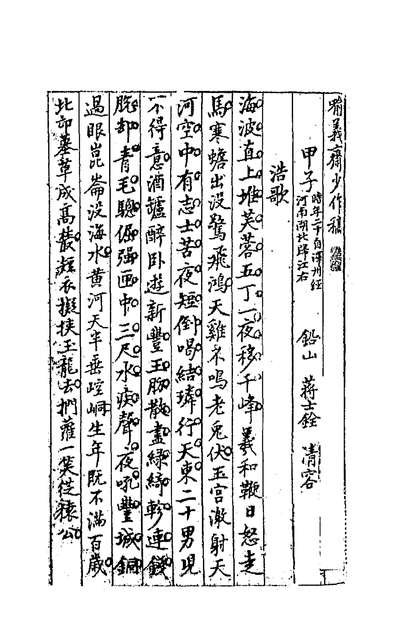 喻義齋少作稿
甲子 時年二十自澤州經河南湖北歸江右 鉛山 蔣士銓 清容
浩歌
海波直上堆芙蓉五丁一夜移千峰羲和鞭日怒走
馬寒蟾出沒驚飛鴻天雞不鳴老兎伏玉宮激射天
河空中有志士苦夜短倒喝結璘行天東二十男兒
不得意酒罏醉卧遊新豐玉肠散盡綠綺軫連錢
脫却青毛驄倔強匣中三尺水痴聲一夜吼豐城銅
過眼崑崙没海水黃河天半垂崆峒生年既不滿百歲
北邙墓草成高叢短衣擬挾玉龍去捫蘿一笑從猿公